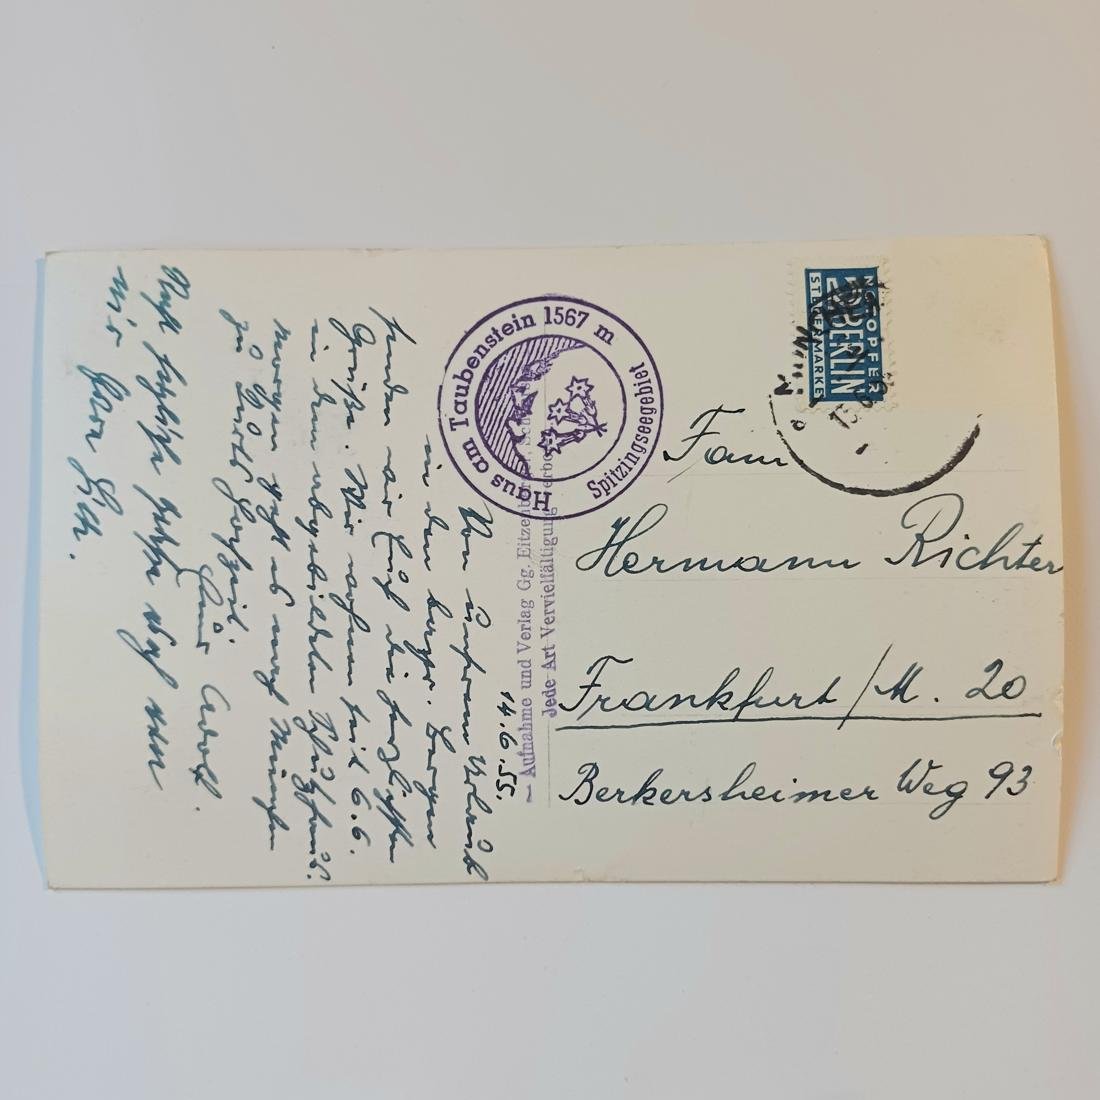 14.6.55.
Von unserem Urlaub
in den bayr. Bergen
senden wir Euch die herzlichsten
Grüße. Wir wohnen seit 6.6.
in dem abgebildeten Schutzhaus.
morgen geht es nach München
zu
Euer Adolf.
Recht herzliche Grüße auch von
mir
Haus am Taubenstein 1567 m
Spitzingseegebiet
Aufnahme und Verlag Gg.
Jede Art Vervielfältigung
NOTOPFER
2 BERLIN
STEUERMARKE
Fam
Hermann Richter
Frankfurt/M. 20
Berkersheimer Weg 93